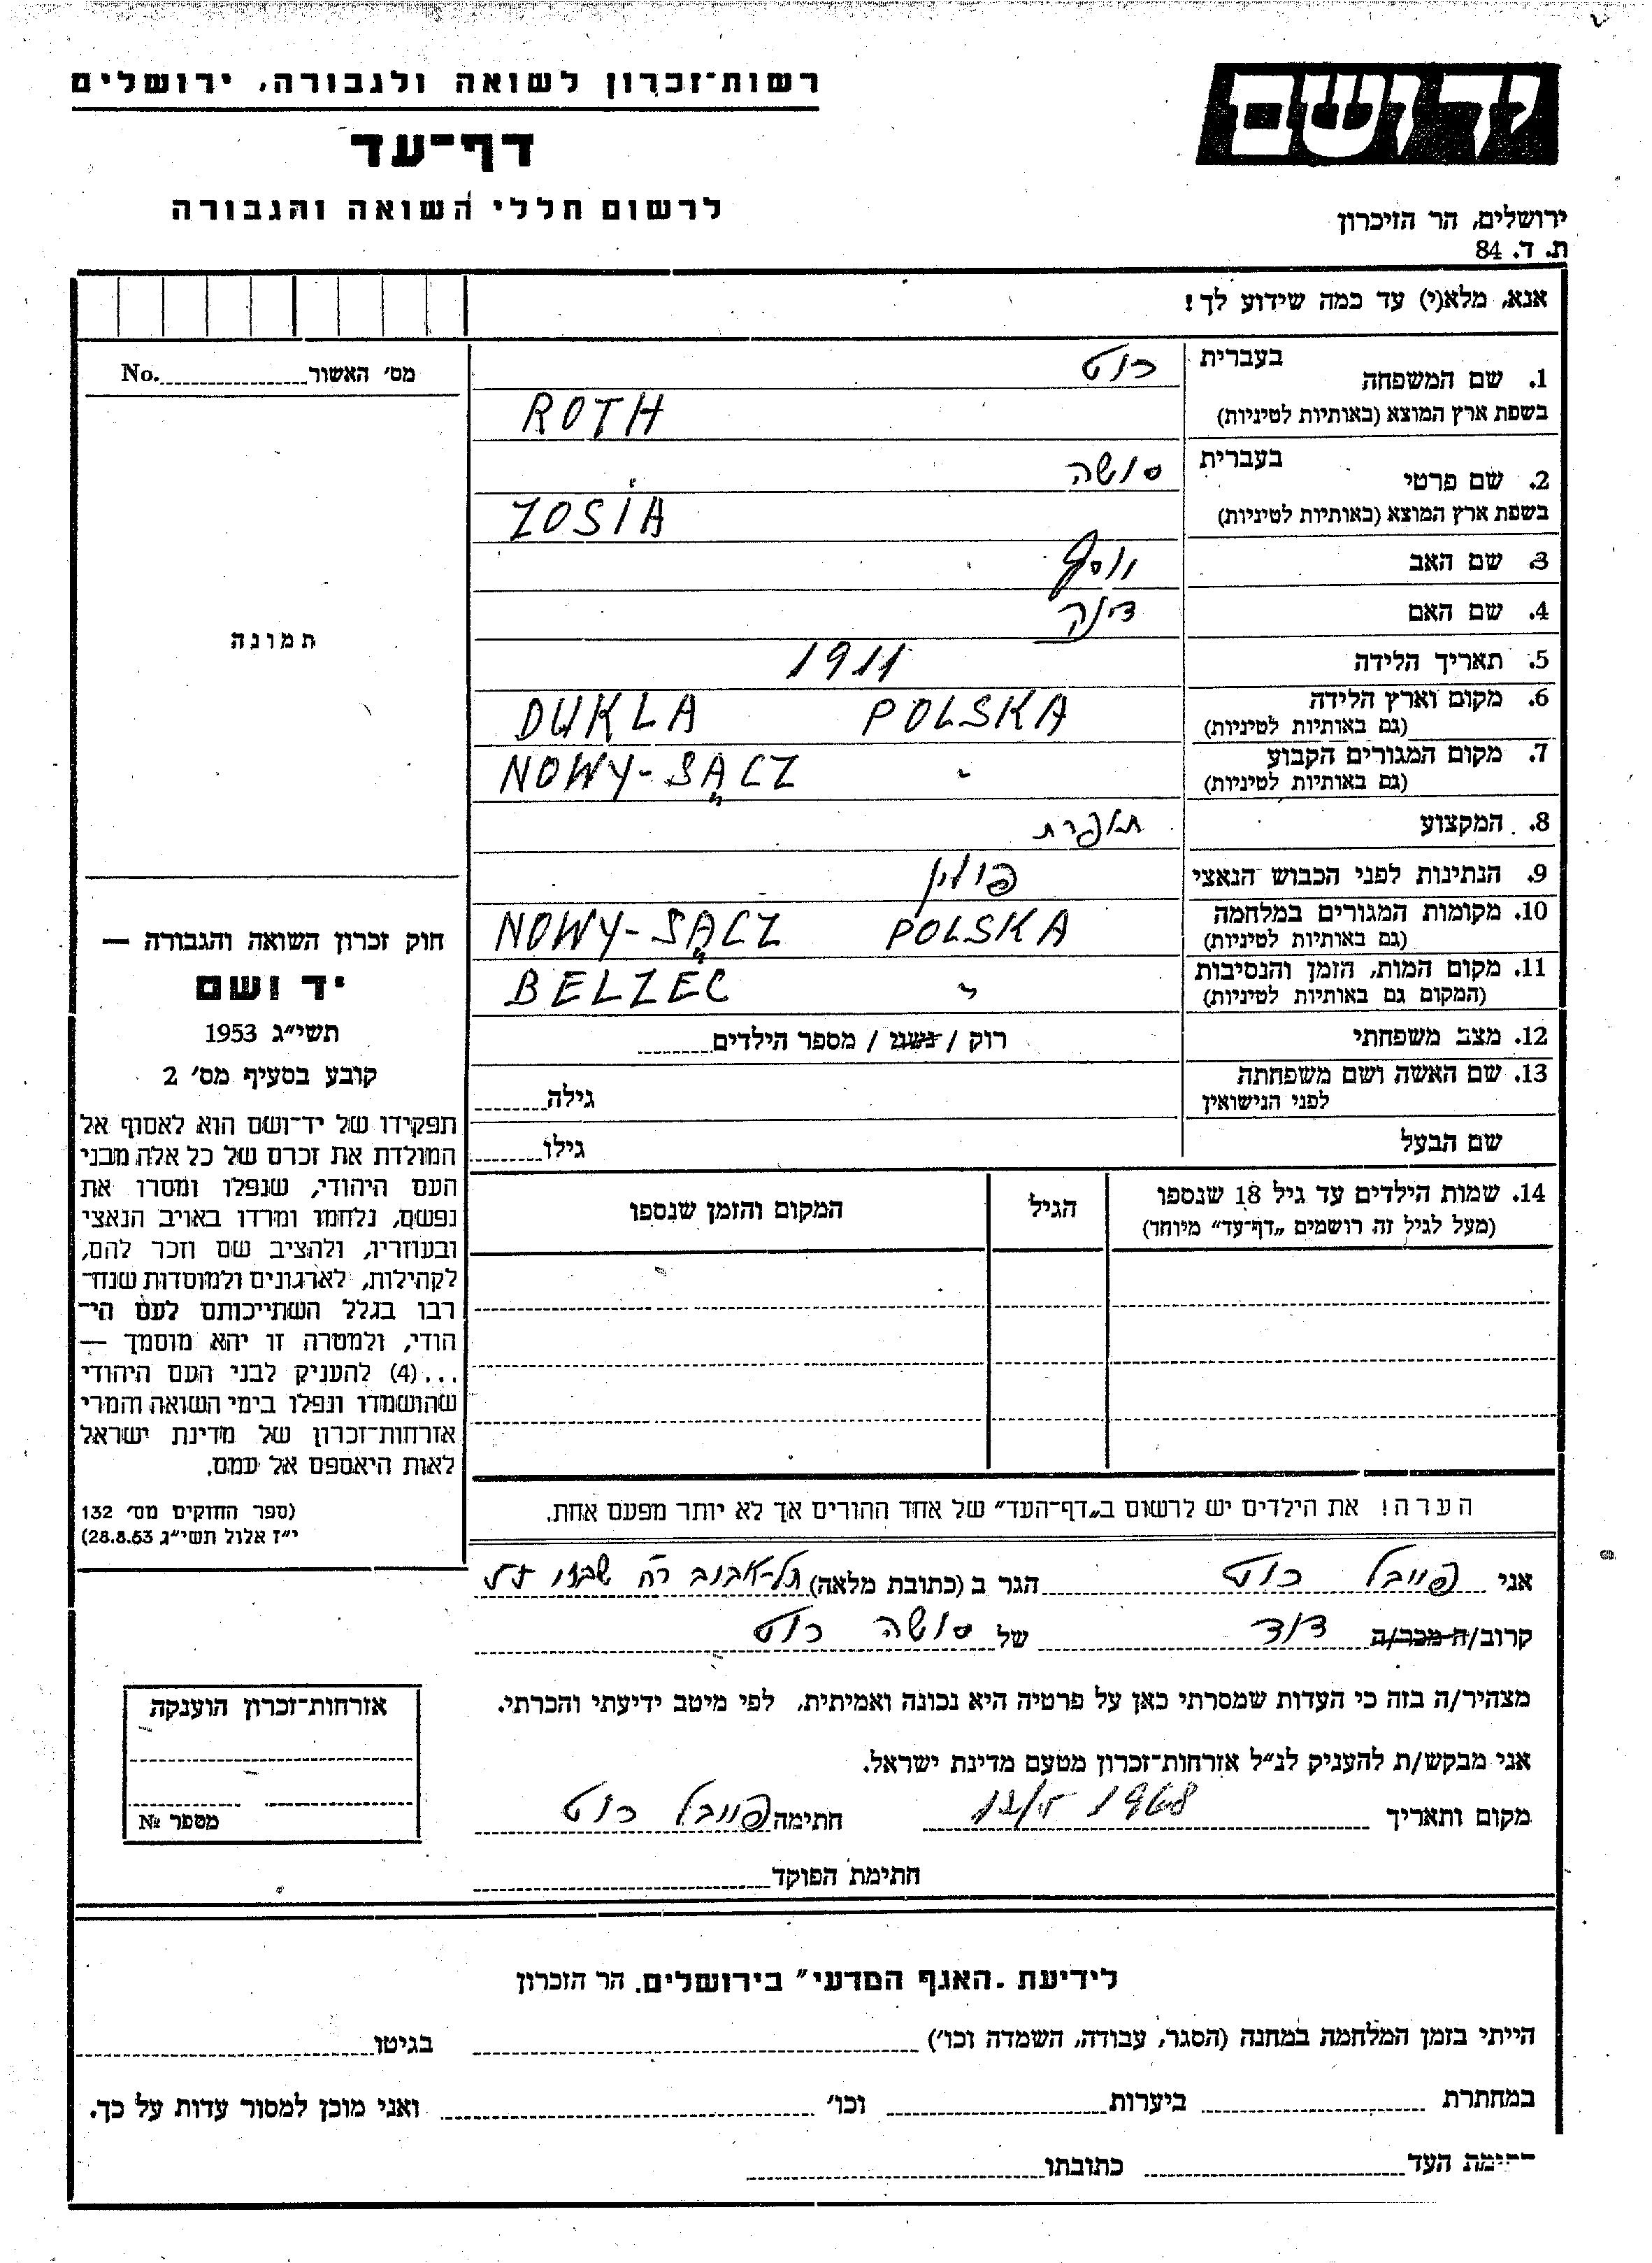 רשות־זכרון לשואה ולגבורה, ירושלים
דף־עד
לרשום חללי השואה והגבורה
יד ושם
ירושלים, הר הזיכרון
ת. ד. 84
אנא, מלא(י) עד כמה שידוע לך!
1. שם המשפחה בעברית רוט
בשפת ארץ המוצא (באותיות לטיניות) ROTH
2. שם פרטי בעברית סושה
בשפת ארץ המוצא (באותיות לטיניות) ZOSIA
3. שם האב יוסף
4. שם האם דינה
5. תאריך הלידה 1911
6. מקום וארץ הלידה (גם באותיות לטיניות) DUKLA POLSKA
7. מקום המגורים הקבוע (גם באותיות לטיניות) NOWY-SĄCZ "
8. המקצוע תופרת
9. הנתינות לפני הכבוש הנאצי פולין
10. מקומות המגורים במלחמה (גם באותיות לטיניות) NOWY-SĄCZ POLSKA
11. מקום המות, הזמן והנסיבות (המקום גם באותיות לטיניות) BELZEC "
12. מצב משפחתי רוק / נשוי / מספר הילדים
13. שם האשה ושם משפחתה לפני הנישואין גילה
שם הבעל גילו
14. שמות הילדים עד גיל 18 שנספו
(מעל לגיל זה רושמים „דף־עד” מיוחד)
הגיל
המקום והזמן שנספו
מס׳ האשור No.
תמונה
חוק זכרון השואה והגבורה —
יד ושם
תשי״ג 1953
קובע בסעיף מס׳ 2
תפקידו של יד־ושם הוא לאסוף אל
המולדת את זכרם של כל אלה מבני
העם היהודי, שנפלו ומסרו את
נפשם, נלחמו ומרדו באויב הנאצי
ובעוזריו, ולהציב שם וזכר להם,
לקהילות, לארגונים ולמוסדות שנח־
רבו בגלל השתייכותם לעם הי־
הודי, ולמטרה זו יהא מוסמך —
...(4) להעניק לבני העם היהודי
שהושמדו ונפלו בימי השואה והמרי
אזרחות־זכרון של מדינת ישראל
לאות היאספם אל עמם.
(ספר החוקים מס׳ 132
י״ז אלול תשי״ג 28.8.53)
הערה! את הילדים יש לרשום ב„דף־העד” של אחד ההורים אך לא יותר מפעם אחת.
אני פייבל רוט הגר ב (כתובת מלאה) תל-אביב רח שבזי
קרוב/ה מכר/ה דוד של סושה רוט
מצהיר/ה בזה כי העדות שמסרתי כאן על פרטיה היא נכונה ואמיתית, לפי מיטב ידיעתי והכרתי.
אני מבקש/ת להעניק לנ״ל אזרחות־זכרון מטעם מדינת ישראל.
מקום ותאריך 1968 חתימה פייבל רוט
חתימת הפוקד
אזרחות־זכרון הוענקה
מספר №
לידיעת „האגף המדעי” בירושלים. הר הזכרון
הייתי בזמן המלחמה במחנה (הסגר, עבודה, השמדה וכו׳) בגיטו
במחתרת ביערות וכו׳ ואני מוכן למסור עדות על כך.
חתימת העד כתובתו